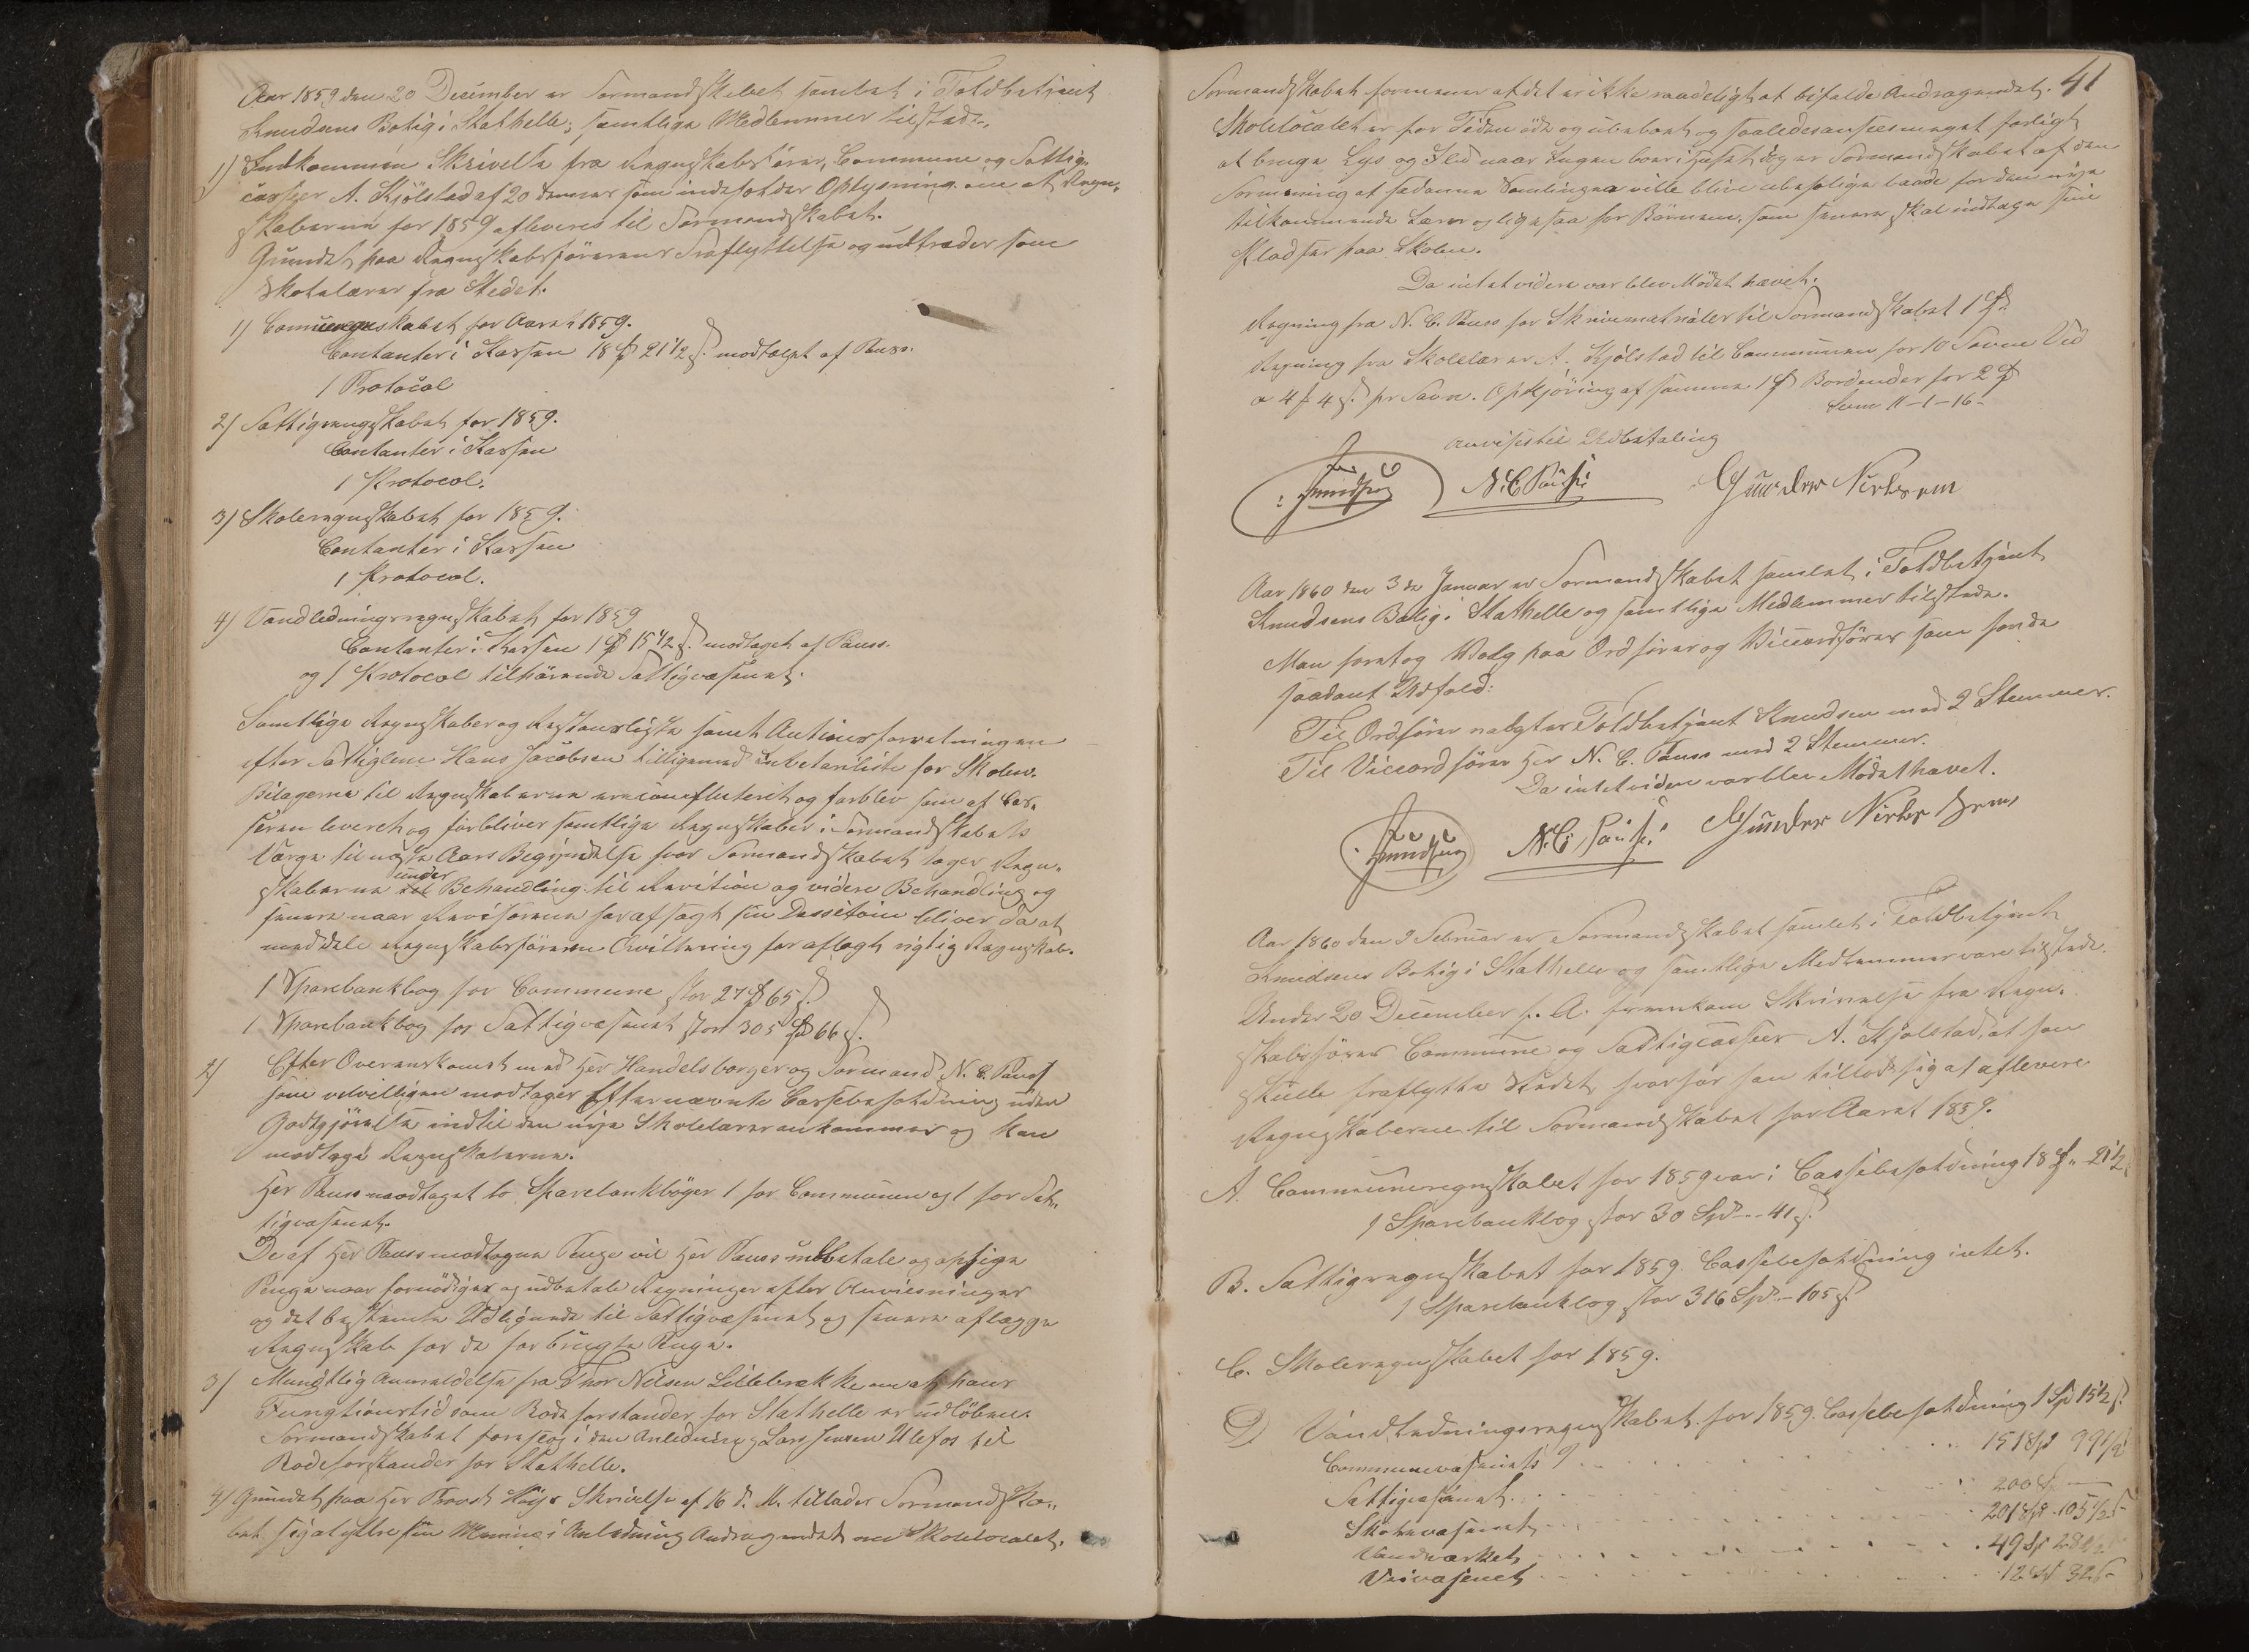 Aar 1859 den 20 December er Formandskabet samlet i Toldbetjent
Knudsens Bolig i Stathelle; samtlige Medlemmer tilstede.
1) Indkommen Skrivelse fra Regnskabsfører, Commune og Fattig-
casseer A. Kjölstad af 20 dennes som indeholder Oplysning om at Regn-
skaberne for 1859 afleveres til Formandskabet.
Grundet paa Regnskabsförerens Fraflyttelse og udtræder som
Skolelærer fra Stedet.
1) Comuneregnskabet for Aaret 1859.
Contanter i Kassen 18 Spd 21 1/2 s. modtaget af Pauss.
1 Protocol
2) Fattigregnskabet for 1859.
Contanter i Kassen
1 Protocol.
3) Skoleregnskabet for 1859.
Contanter i Kassen
1 Protocol.
4) Vandledningsregnskabet for 1859
Contanter i Kassen 1 Spd 15 1/2 s. modtaget af Pauss.
og 1 Protocol tilhørende Fattigvæsenet.
Samtlige Regnskaber og Restanseliste samt Auctionsforretningen
efter Fattiglem Hans Jacobsen tilligemed Inventariliste for Skolen.
Bilagerne til Regnskaberne ere og forblev som af Cas-
seren leveret og forbliver samtlige Regnskaber i Formandskabets
Værge til næste Aars Begyndelse hvor Formandskabet tager Regn-
skaberne under Behandling til Revition og videre Behandling og
senere naar Revisorerne har afsagt sin Dessition bliver da at
meddele Regnskabsføreren Qvittering for aflagt rigtig Regnskab.
1 Sparebankbog for Commune stor 27 Spd 65 s.
1 Sparebankbog for Fattigvæsenet stor 305 Spd 66 s.
2) Efter Overenskomst med Her Handelsborger og Formand N. C. Pauss
som velvilligen modtager Efternævnte Cassebeholdning uden
Godtgjörelse indtil den nye Skolelærer ankommer og kan
modtage Regnskaberne.
Her Pauss modtaget to Sparebankbøger 1 for Communen og 1 for Fat-
tigvæsenet.
De af Her Pauss modtagne Penge vil Her Pauss udbetale og opsige
Penge naar fornødiges og udbetale Regninger efter Anviisninger
og det bestemte Udlignede til Fattigvæsenet og senere aflægge
Regnskab for de forbrugte Penge.
3) Mundtlig Anmeldelse fra Thor Nilsen Lillebække om at hans
Fungtionstid som Rodeforstander for Stathelle er udløben.
Formandskabet foreslog i den Anledning Lars Jensen Ulefos til
Rodeforstander for Stathelle.
4) Grundet paa Her Provst Høyer Skrivelse af 16 d. M. tillader Formandska-
bet sig at yttre sin Mening i Anledning Andragendet om Skolelocalet.
41
Formandskabet formener at det er ikke raadeligt at bifalde Andragendet.
Skolelocalet er for Tiden øde og ubeboet og saaledes ansees meget farligt
at bruge Lys og Ild naar Ingen boer i Huset og er Formandskabet af den
Formening at sadanne Samlinger ville blive ubehelige baade for den nye
tilkommende Lærer og ligesaa for Børnene, som senere skal indtage sine
Pladser paa Skolen.
Da intet videre var blev Mödet hævet.
Regning fra N. C. Pauss for Skrivematrialer til Formandskabet 1 Spd
Regning fra Skolelærer A. Kjölstad til Communen for 10 Favne Ved
a 4 4 s. pr Favn. Opkjöring af samme 1 Spd Bordender for 2
Sum 11-1-16-
anvises til Udbetaling
Knudsen N. C. Pauss Gunder Nirlsen
Aar 1860 den 3de Januar er Formandskabet samlet i Toldbetjent
Knudsens Bolig i Stathelle og samtlige Medlemmer tilstede.
Man foretog Valg paa Ordfører og Viceordfører som havde
saadant Udfald:
Til Ordfører valgtes Toldbetjent Knudsen med 2 Stemmer.
Til Viceordfører Her N. C. Pauss med 2 Stemmer.
Da intet videre var blev Mödet hævet.
Knudsen N. C. Pauss Gunder Nirlsen
Aar 1860 den 9 Februar er Formandskabet samlet i Toldbetjent
Knudsens Bolig i Stathelle og samtlige Medlemmer vare tilstede.
Under 20 December f. A. fremkom Skrivelse fra Regn-
skabsfører Commune og Fattigcasseer A. Kjölstad, at han
skulle fraflytte Stedet hvorfor han tillod sig at aflevere
Regnskaberne til Formandskabet for Aaret 1859.
A. Communeregnskabet for 1859 var i Cassebeholdning 18 Spd 21 1/2
1 Sparebankbog stor 30 Spd -- 41 s.
B. Fattigregnskabet for 1859. Cassebeholdning intet.
1 Sparebankbog stor 316 Spd - 105 s.
C. Skoleregnskabet for 1859.
D) Vandledningsregnskabet for 1859. Cassebeholdning 1 Spd 15 1/2 s.
Communevæsenets 151 Spd 99 1/2
Fattigvæsenet 200 Spd
Skolevæsenet 201 Spd 105 1/2
Vandværket 49 Spd
Veivæsenet 12 Spd 32